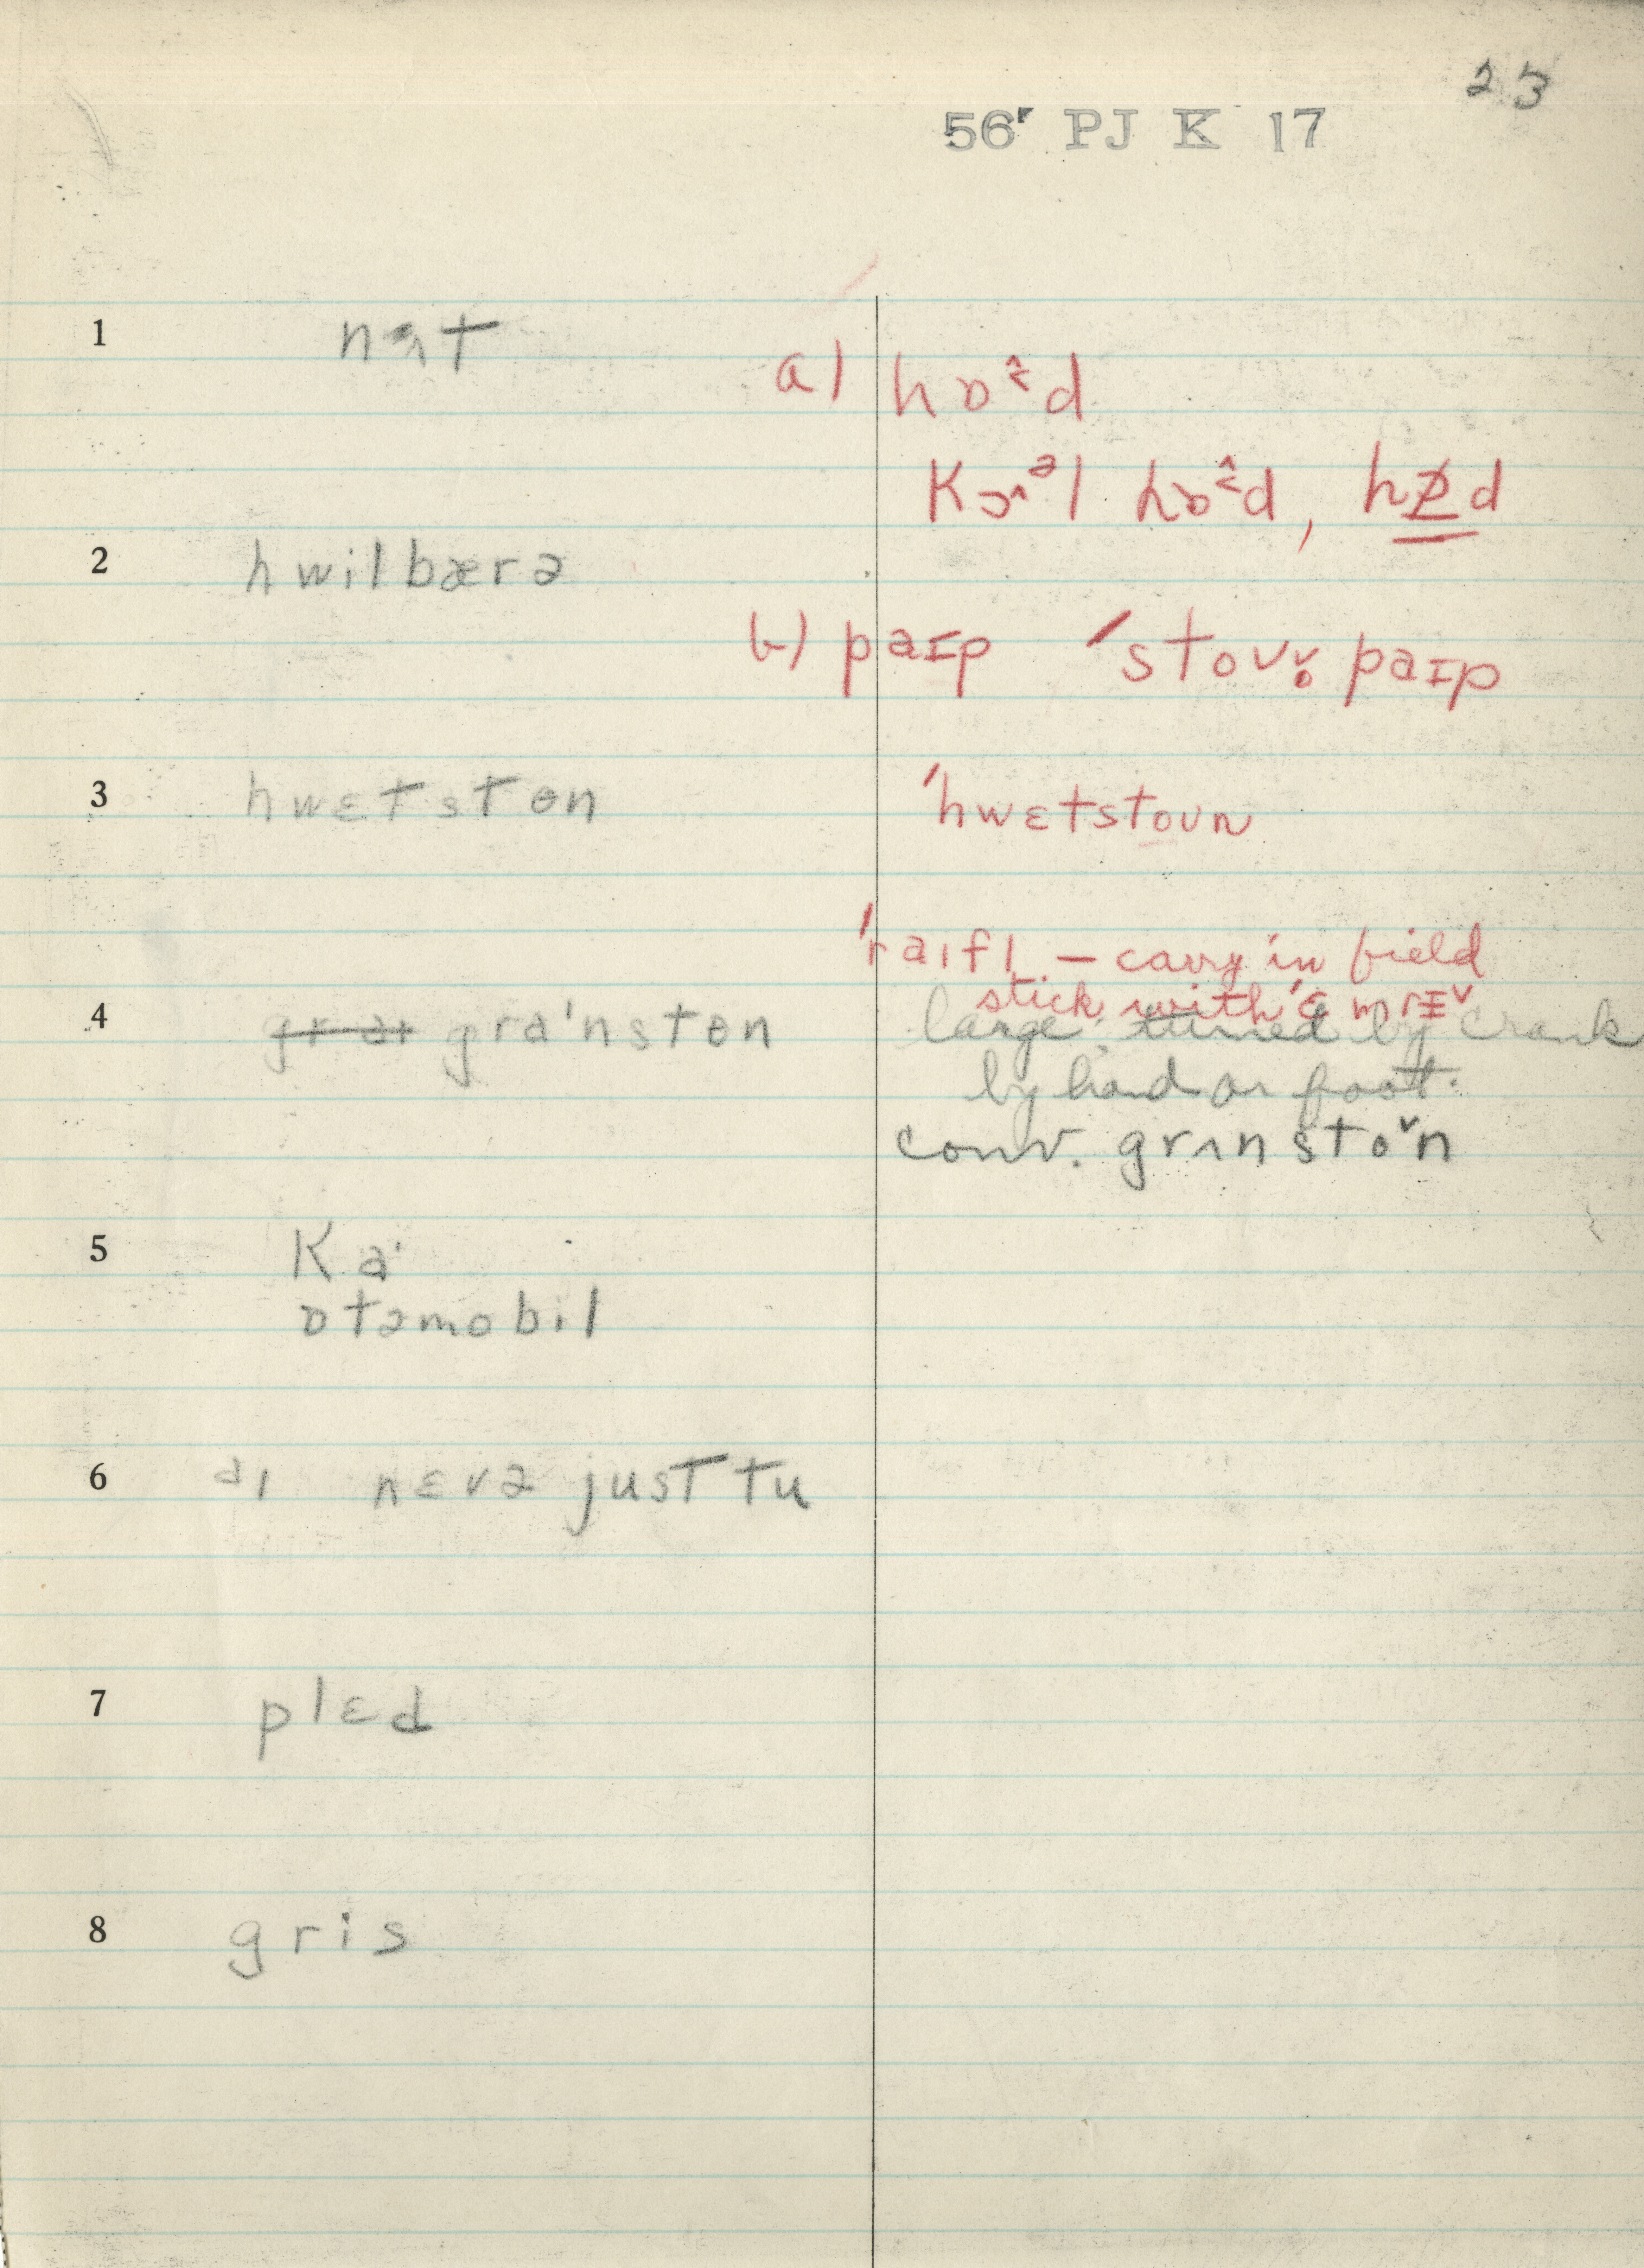 23
56' PJ K 17
1 nɜt
a) hɒ˂̂d
Kɔ^əl hɒ˂̂d, hɒd
2 hwilbærə
b) paɪp 'stoʊv̥ paɪp
3 hwɛtstɵn
'hwɛtstoʊn
'raɪfl — carry in field
stick with 'ɛmrɪ˅
4 gr aɪ gra'nstɵn
large turned by crank
by hand or foot.
conv. grʌnsto˅n
5 Ka'
ɒtəmobil
6 aɪ nɛvə just tu
7 plɛd
8 gris